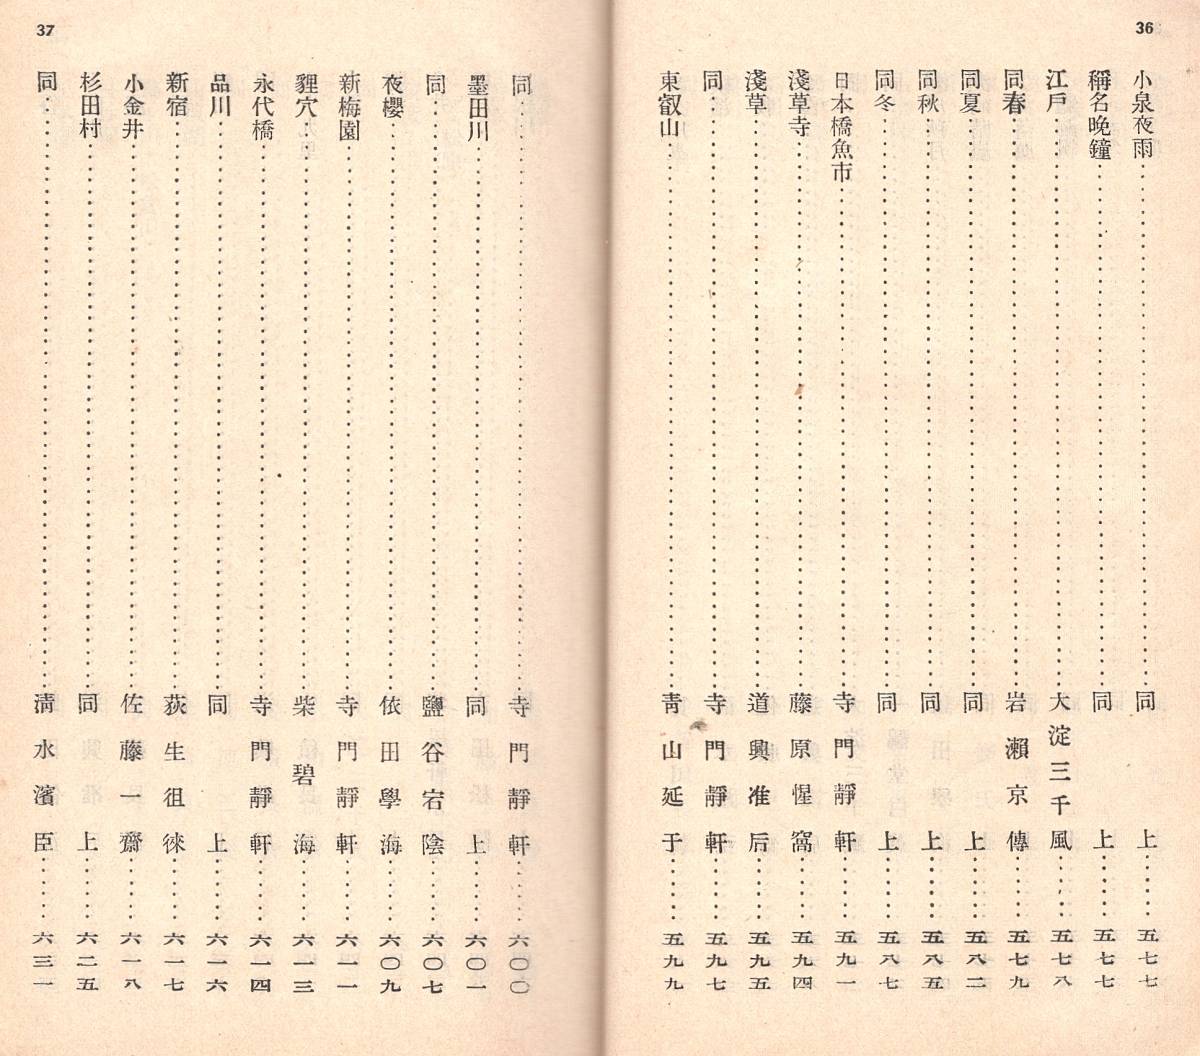 36
小泉夜雨……同上……五七七
稱名晚鐘……同上……五七七
江戶……大淀三千風……五七八
同春……岩瀨京傳……五七九
同夏……同上……五八二
同秋……同上……五八五
同冬……同上……五八七
日本橋魚市……寺門靜軒……五九一
淺草寺……藤原惺窩……五九四
淺草……道興准后……五九五
同……寺門靜軒……五九七
東叡山……靑山延于……五九九
37
同……寺門靜軒……六〇〇
墨田川……同上……六〇一
同……鹽谷宕陰……六〇七
夜櫻……依田學海……六〇九
新梅園……寺門靜軒……六一一
貍穴……柴碧海……六一三
永代橋……寺門靜軒……六一四
品川……同上……六一六
新宿……荻生徂徠……六一七
小金井……佐藤一齋……六一八
杉田村……同上……六二五
同……淸水濱臣……六三一